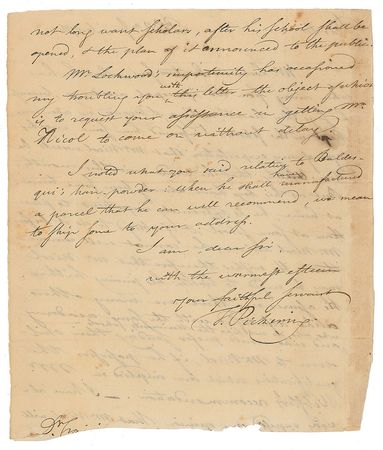 not long want scholars, after his school shall be
opened, & the plan of it announced to the public.
Mr. Lockwood's importunity has occasioned
my troubling you with this letter, the object of which
is to request your assistance in getting Mr.
Nicol to come on without delay.
I noted what you said relating to Balder-
qui's hair-powder: when he shall have manufactured
a parcel that he can will recommend, we mean
to ship some to your address.
I am, dear sir
with the warmest esteem
your faithful servant
T. Pickering
Dr.